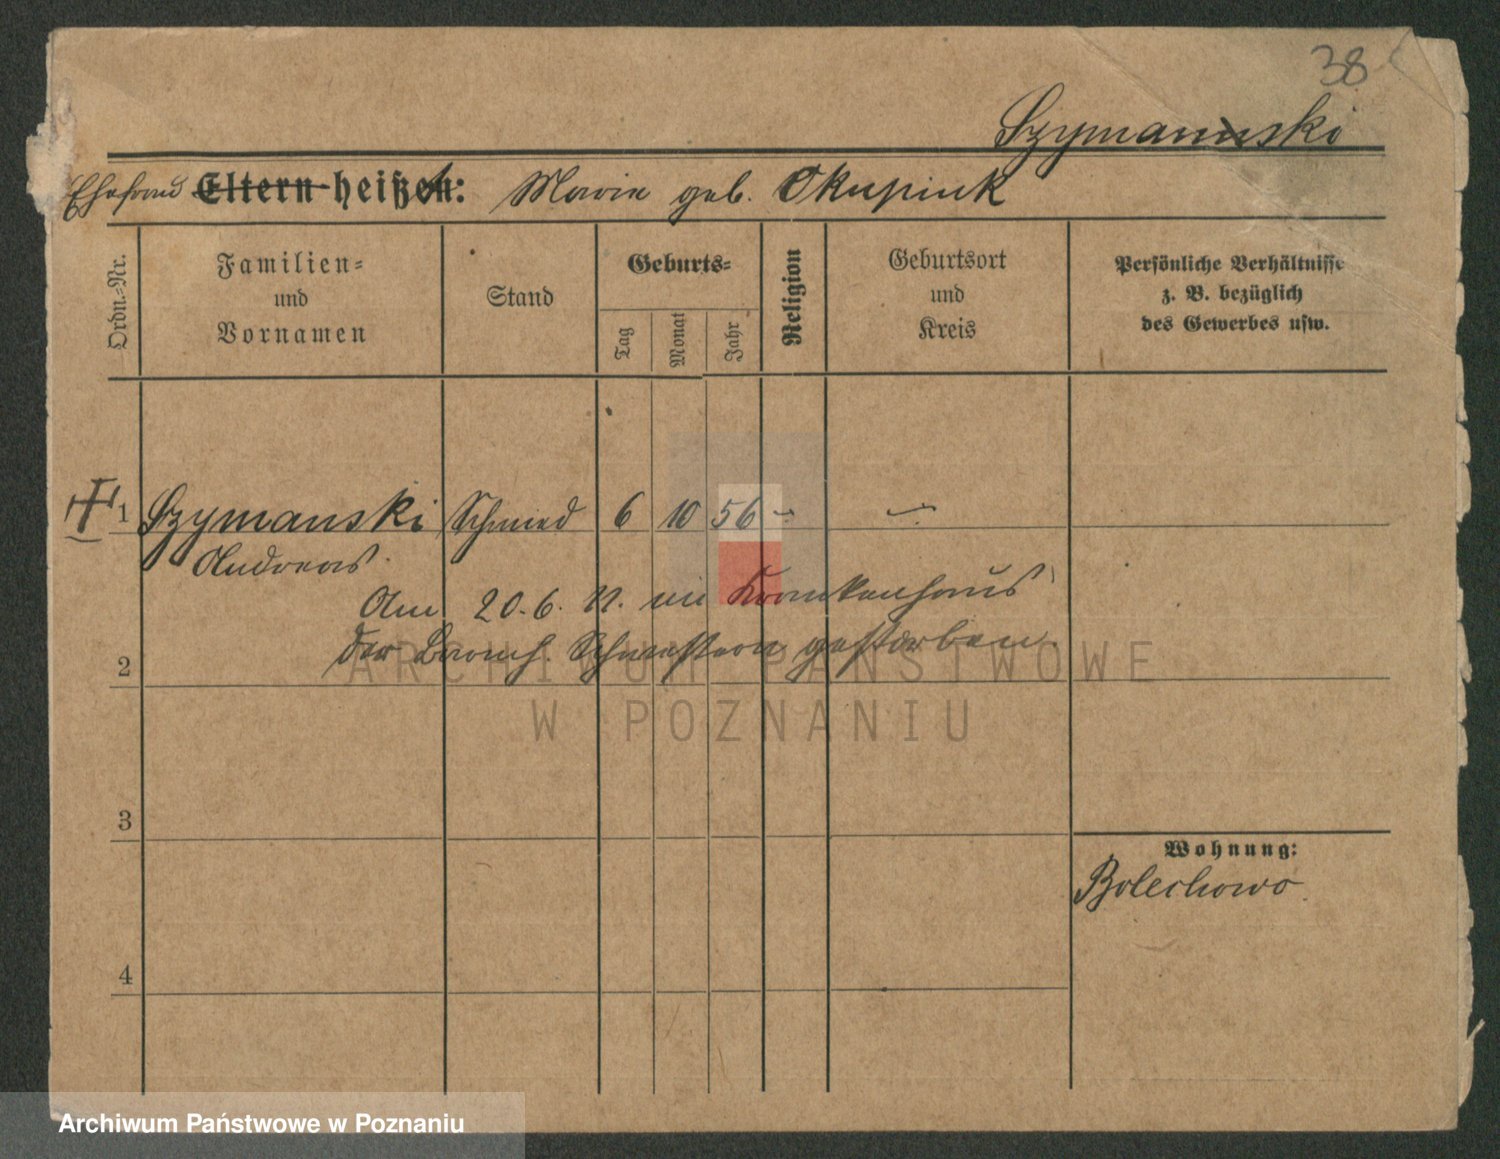 38
Szymanski
Ehefrau Eltern heißen: Marie geb. Skupink
Ordn.-Nr.
Familien-
und
Vornamen
Stand
Geburts-
Tag
Monat
Jahr
Religion
Geburtsort
und
Kreis
Persönliche Verhältnisse
z. B. bezüglich
des Gewerbes usw.
1 Szymanski Schmied 6 10 56 - -
Andreas.
Am 20.6. 11. im Krankenhaus
der Barmh. Schwestern gestorben.
2
3
4
Wohnung:
Bolechowo
ARCHIWUM PAŃSTWOWE
W POZNANIU
Archiwum Państwowe w Poznaniu